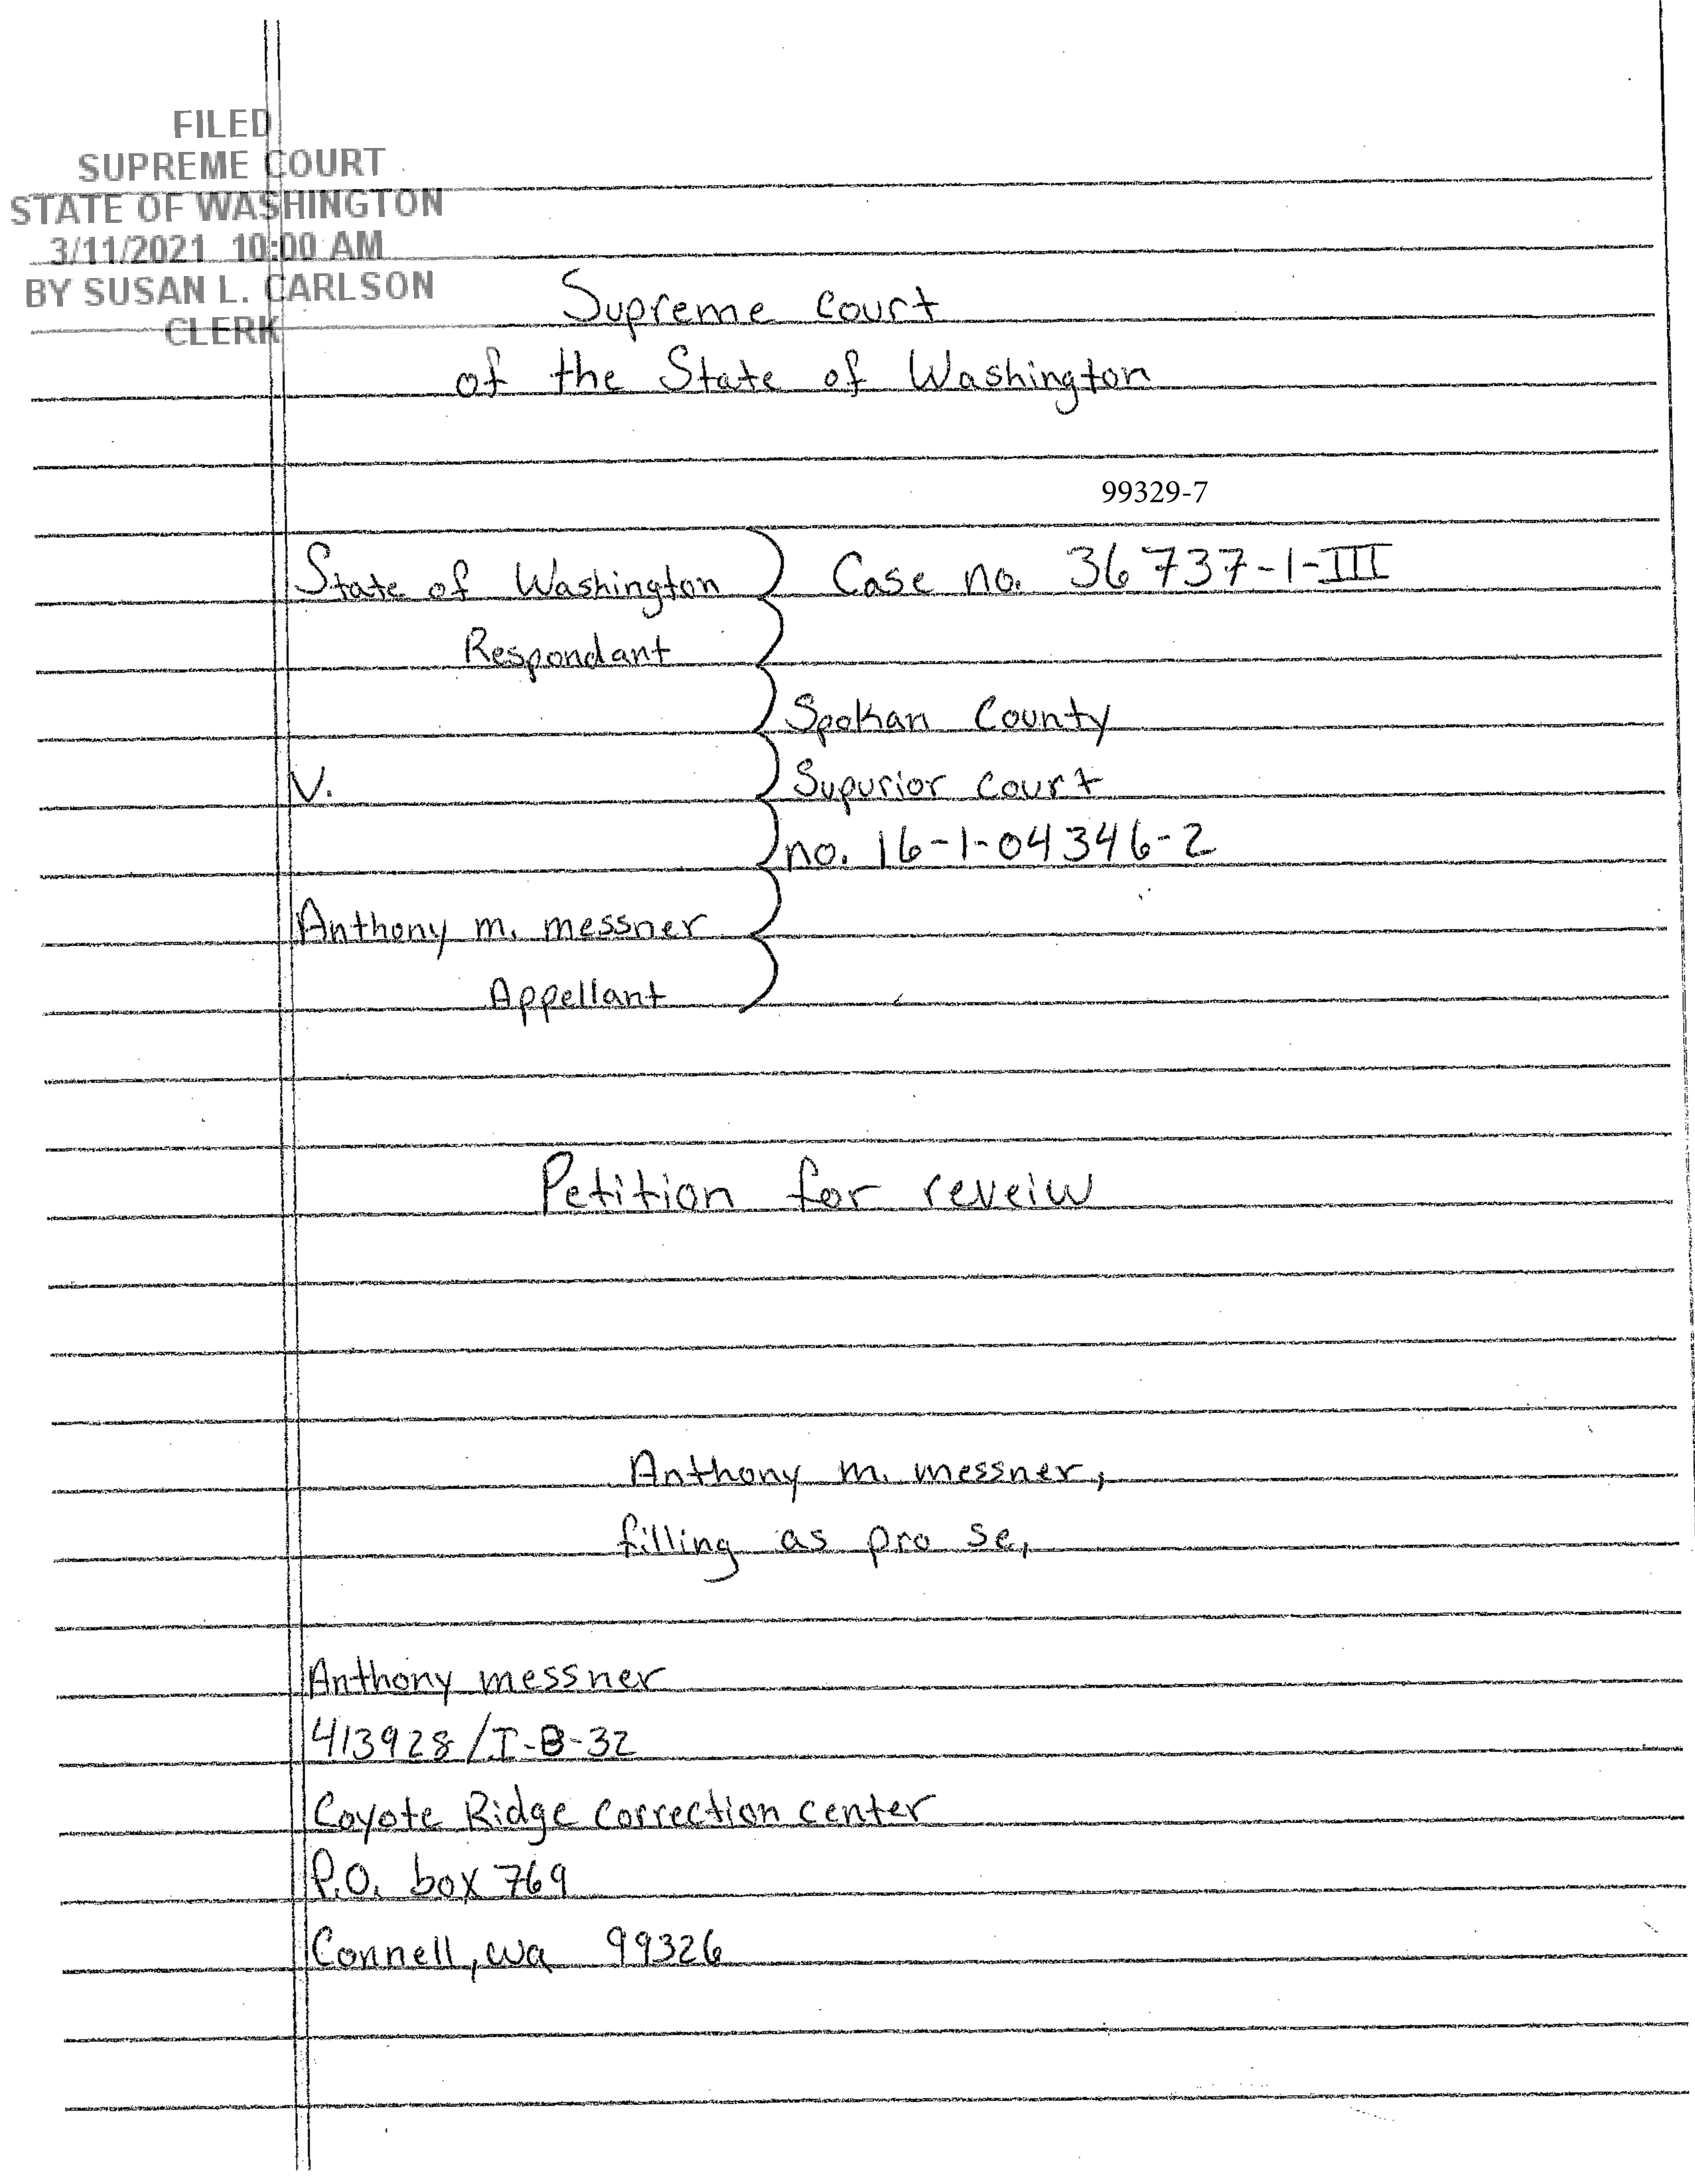 FILED
SUPREME COURT
STATE OF WASHINGTON
3/11/2021 10:00 AM
BY SUSAN L. CARLSON
CLERK
Supreme Court
of the State of Washington
99329-7
State of Washington Case no. 36737-1-III
Respondant
Spokan County
V. Supurior Court
no. 16-1-04346-2
Anthony m. messner
Appellant
Petition for reveiw
Anthony m. messner,
filling as pro se,
Anthony messner
413928/I-B-32
Coyote Ridge Correction center
P.O. box 769
Connell, wa 99326